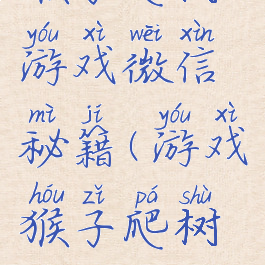 yóu xì wēi xìn
游戏微信
mì jí yóu xì
秘籍(游戏
hóu zǐ pá shù
猴子爬树